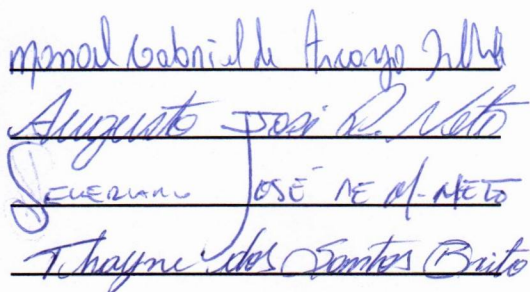 Manoel Gabriel de Araujo Filho
Augusto José R. Neto
Severiano José de M. Neto
Thayne dos Santos Brito